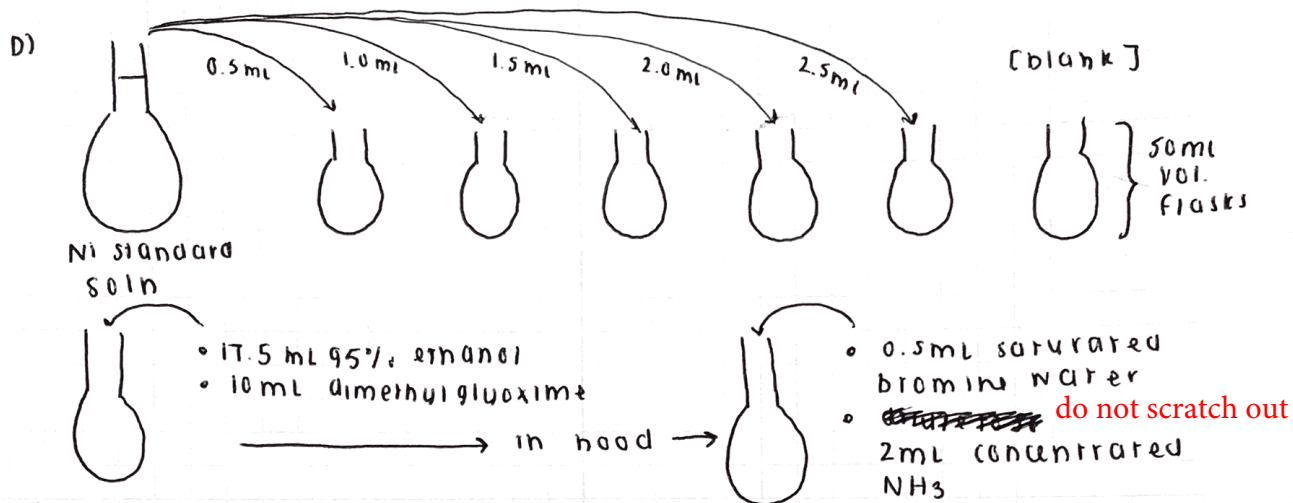 D)
0.5 mL
1.0 mL
1.5 mL
2.0 mL
2.5 mL
[blank]
50 mL
vol.
flasks
Ni standard
soln
• 17.5 mL 95% ethanol
• 10 mL dimethylglyoxime
in hood
• 0.5 mL saturated
bromine water
•
do not scratch out
2 mL concentrated
NH3